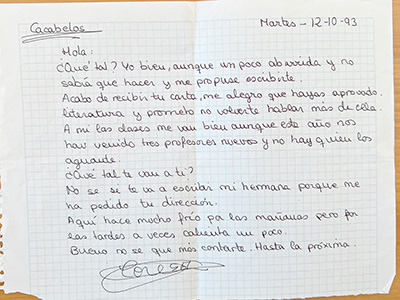 Cacabelos
Martes - 12-10-93
Hola:
¿Qué tal? Yo bien, aunque un poco aburrida y no
sabía que hacer y me propuse escribirte.
Acabo de recibir tu carta, me alegro que hayas aprovado
literatura y prometo no volverte hablar más de ella.
A mi las clases me van bien aunque este año nos
han venido tres profesores nuevos y no hay quien los
aguante.
¿Qué tal te van a ti?
No se si te va a escribir mi hermana porque me
ha pedido tu dirección.
Aquí hace mucho frío pa las mañanas pero por
las tardes a veces calienta un poco.
Bueno no se que más contarte. Hasta la próxima.